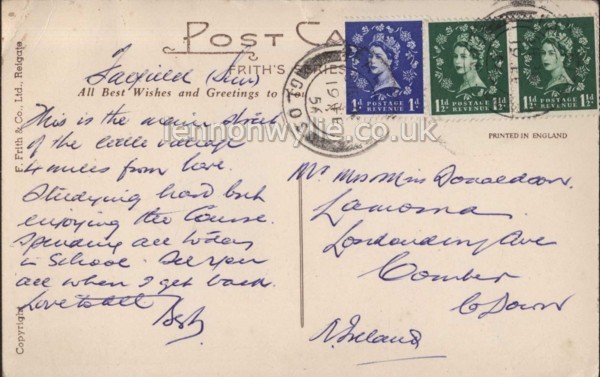 POST CA
FRITH'S SERIES
All Best Wishes and Greetings to
This is the main street
of the little village
4 miles from here.
Studying hard but
enjoying the Course.
Spending all today
in School. See you
all when I get back.
Love to all
Mr Mrs Miss Donaldson.
Lamorna
Londonderry Ave
Comber
Co Down
N. Ireland
PRINTED IN ENGLAND
F. Frith & Co., Ltd., Reigate
Copyright
1d POSTAGE REVENUE 1d
1½d POSTAGE REVENUE 1½d
1½d POSTAGE REVENUE 1½d
lennonwylie.co.uk